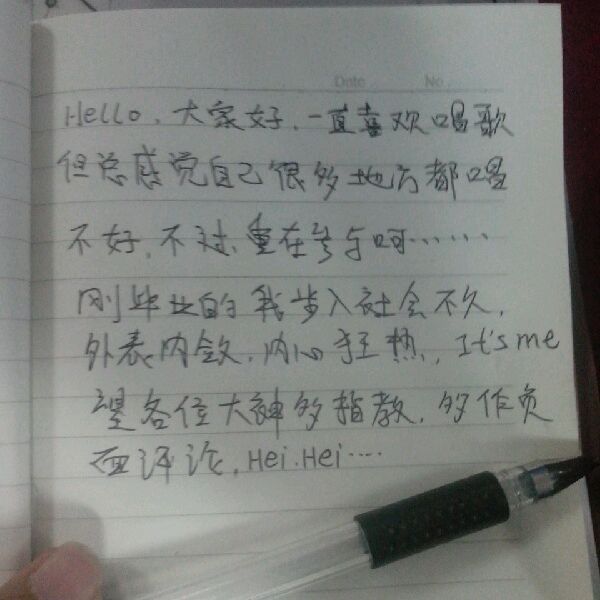 Date No.
Hello，大家好，一直喜欢唱歌
但总感觉自己很多地方都唱
不好，不过，重在参与呵……
刚毕业的我步入社会不久，
外表内敛，内心狂热，It's me
望各位大神多指教，多作负
面评论，Hei.Hei….